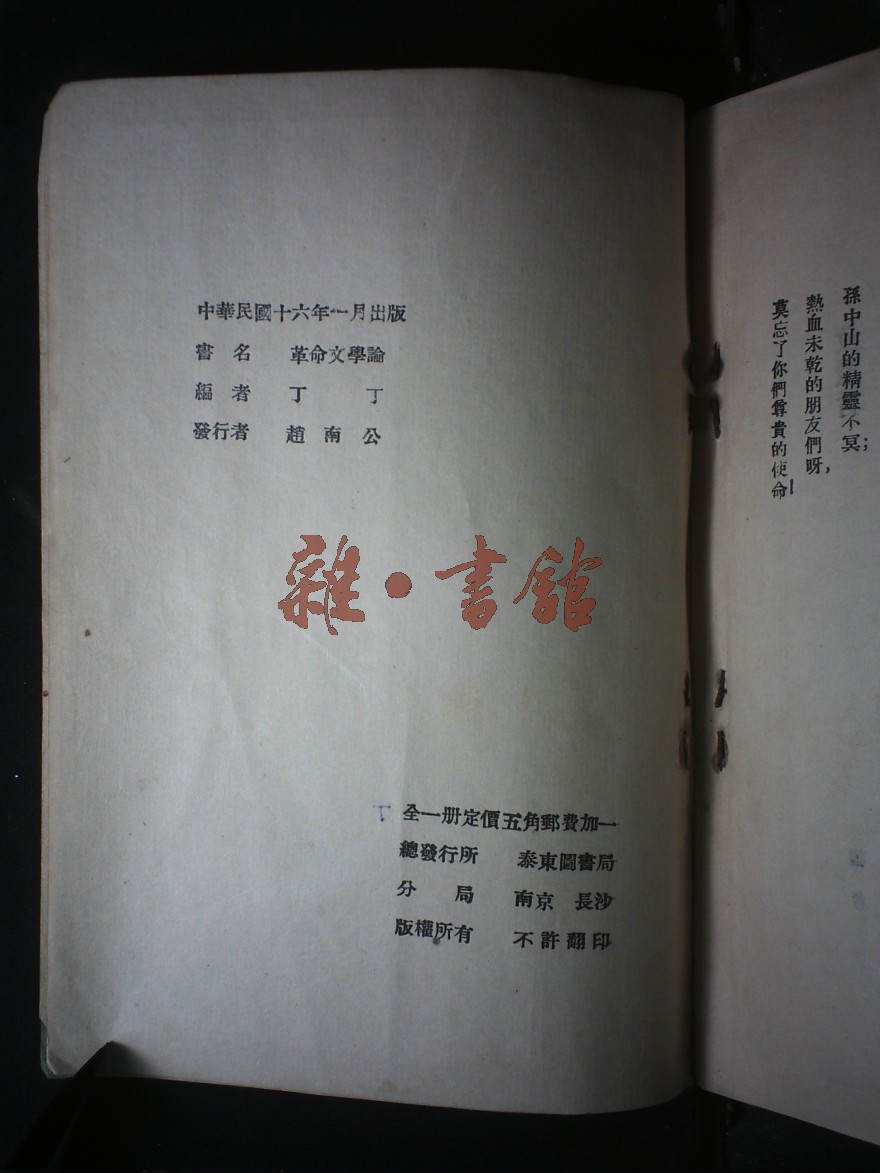 孫中山的精靈不冥；
熱血未乾的朋友們呀，
莫忘了你們尊貴的使命！
中華民國十六年一月出版
書名 革命文學論
編者 丁丁
發行者 趙南公
雜·書館
全一册定價五角郵費加一
總發行所 泰東圖書局
分局 南京 長沙
版權所有 不許翻印